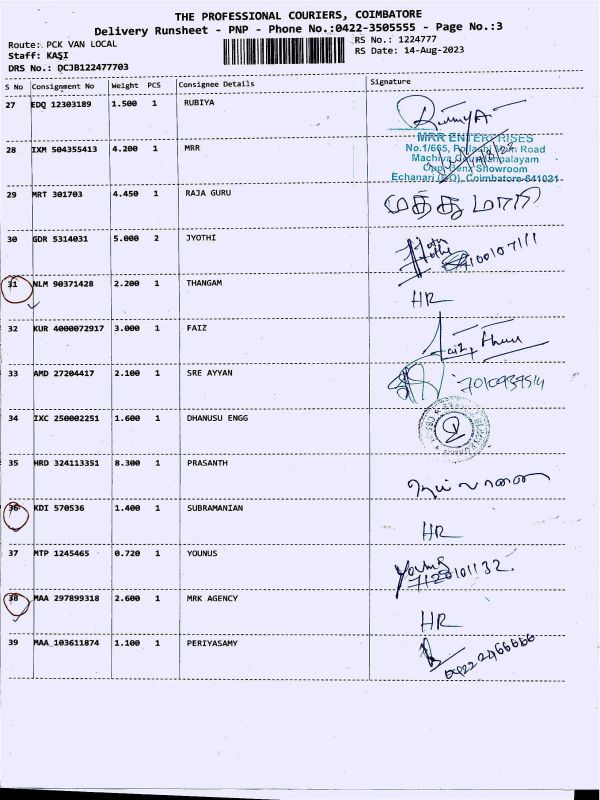 THE PROFESSIONAL COURIERS, COIMBATORE
Delivery Runsheet - PNP - Phone No.:0422-3505555 - Page No.:3
Route: PCK VAN LOCAL
Staff: KASI
DRS No.: QCJB122477703
RS No.: 1224777
RS Date: 14-Aug-2023
S No Consignment No Weight PCS Consignee Details Signature
27 EDQ 12303189 1.500 1 RUBIYA
28 IXM 504355413 4.200 1 MRR
MRR ENTERPRISES
No.1/665, Pollachi Main Road
Machiya Goundenpalayam
Opp. Benz Showroom
Echanari (PO), Coimbatore-641021
29 MRT 301703 4.450 1 RAJA GURU
30 GDR 5314031 5.000 2 JYOTHI
31 NLM 90371428 2.200 1 THANGAM HR
32 KUR 4000072917 3.000 1 FAIZ
33 AMD 27204417 2.100 1 SRE AYYAN
34 IXC 250002251 1.600 1 DHANUSU ENGG
35 HRD 324113351 8.300 1 PRASANTH
36 KDI 570536 1.400 1 SUBRAMANIAN HR
37 MTP 1245465 0.720 1 YOUNUS
38 MAA 297899318 2.600 1 MRK AGENCY HR
39 MAA 103611874 1.100 1 PERIYASAMY
0422 2466666